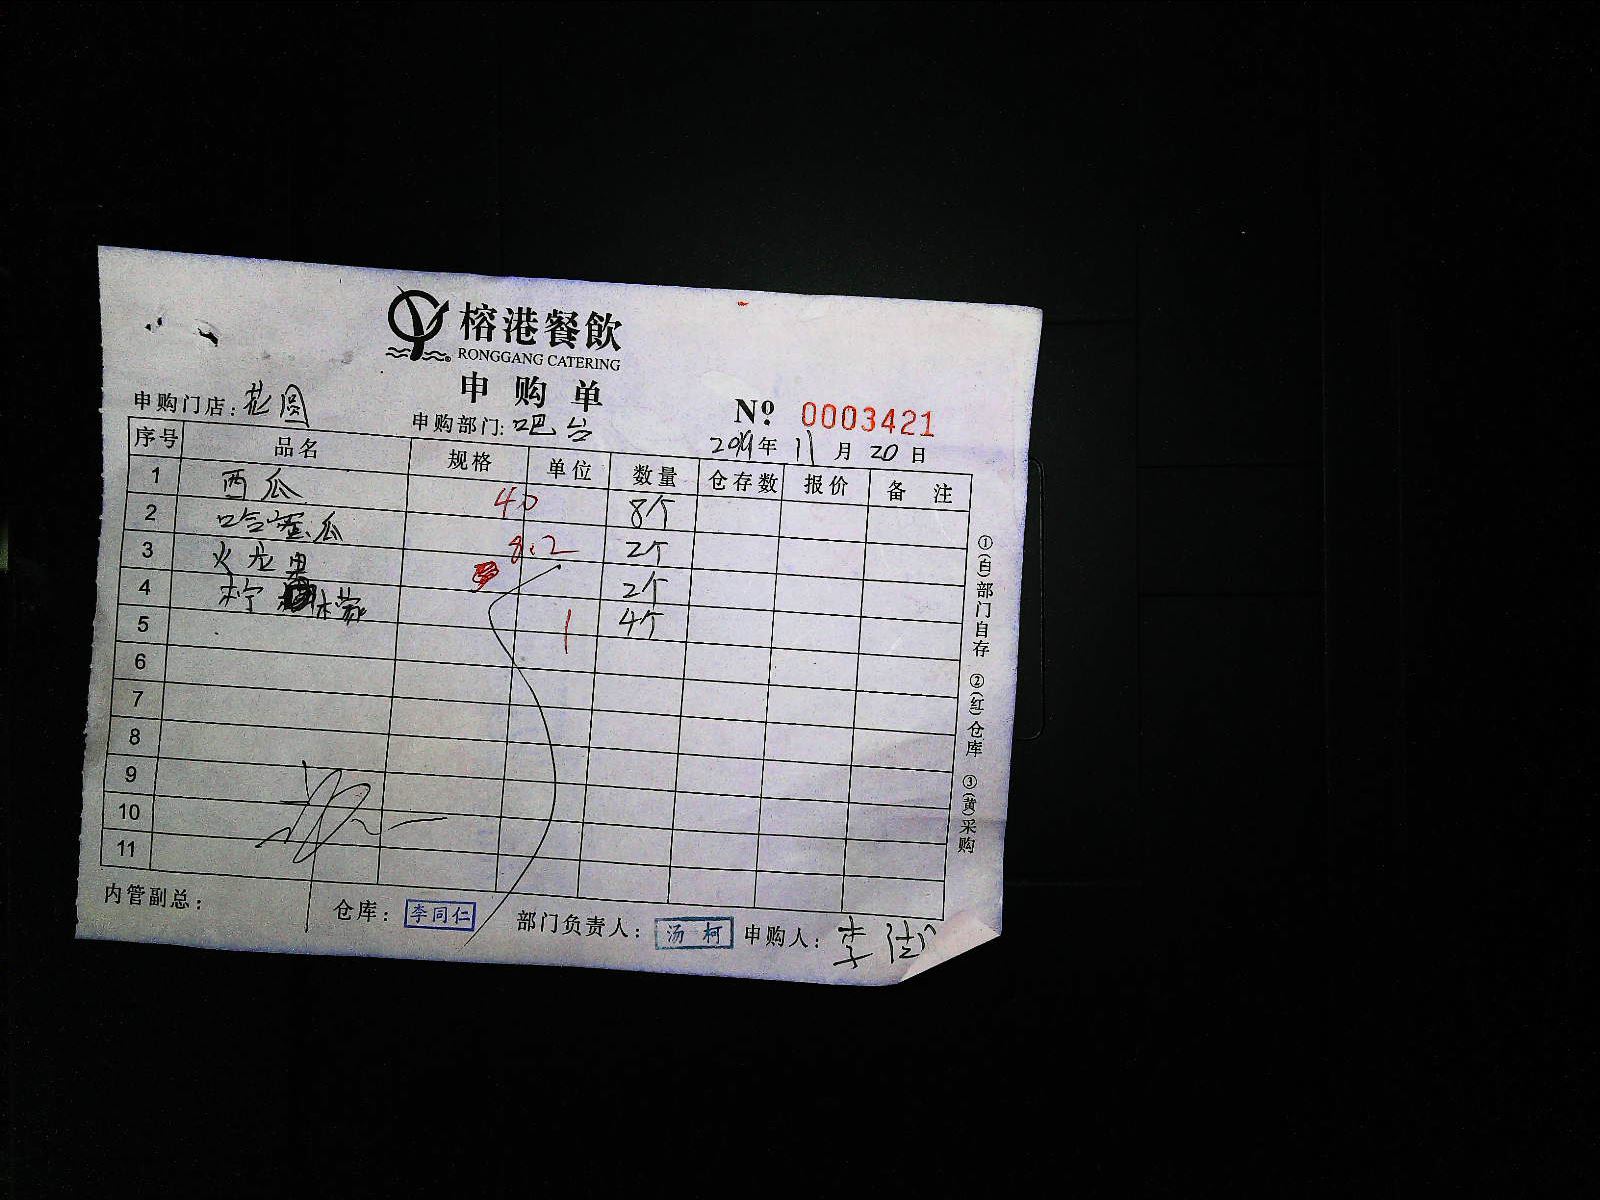 榕港餐飲
RONGGANG CATERING
申购单
申购门店：花园
申购部门：吧台
№ 0003421
2019年 11月 20日
序号 品名 规格 单位 数量 仓存数 报价 备注
1 西瓜 40 8个
2 哈蜜瓜 8.2 2个
3 火龙果 2个
4 柠檬 1 4个
5
6
7
8
9
10
11
①(白)部门自存 ②(红)仓库 ③(黄)采购
内管副总：
仓库：李同仁
部门负责人：汤柯
申购人：李